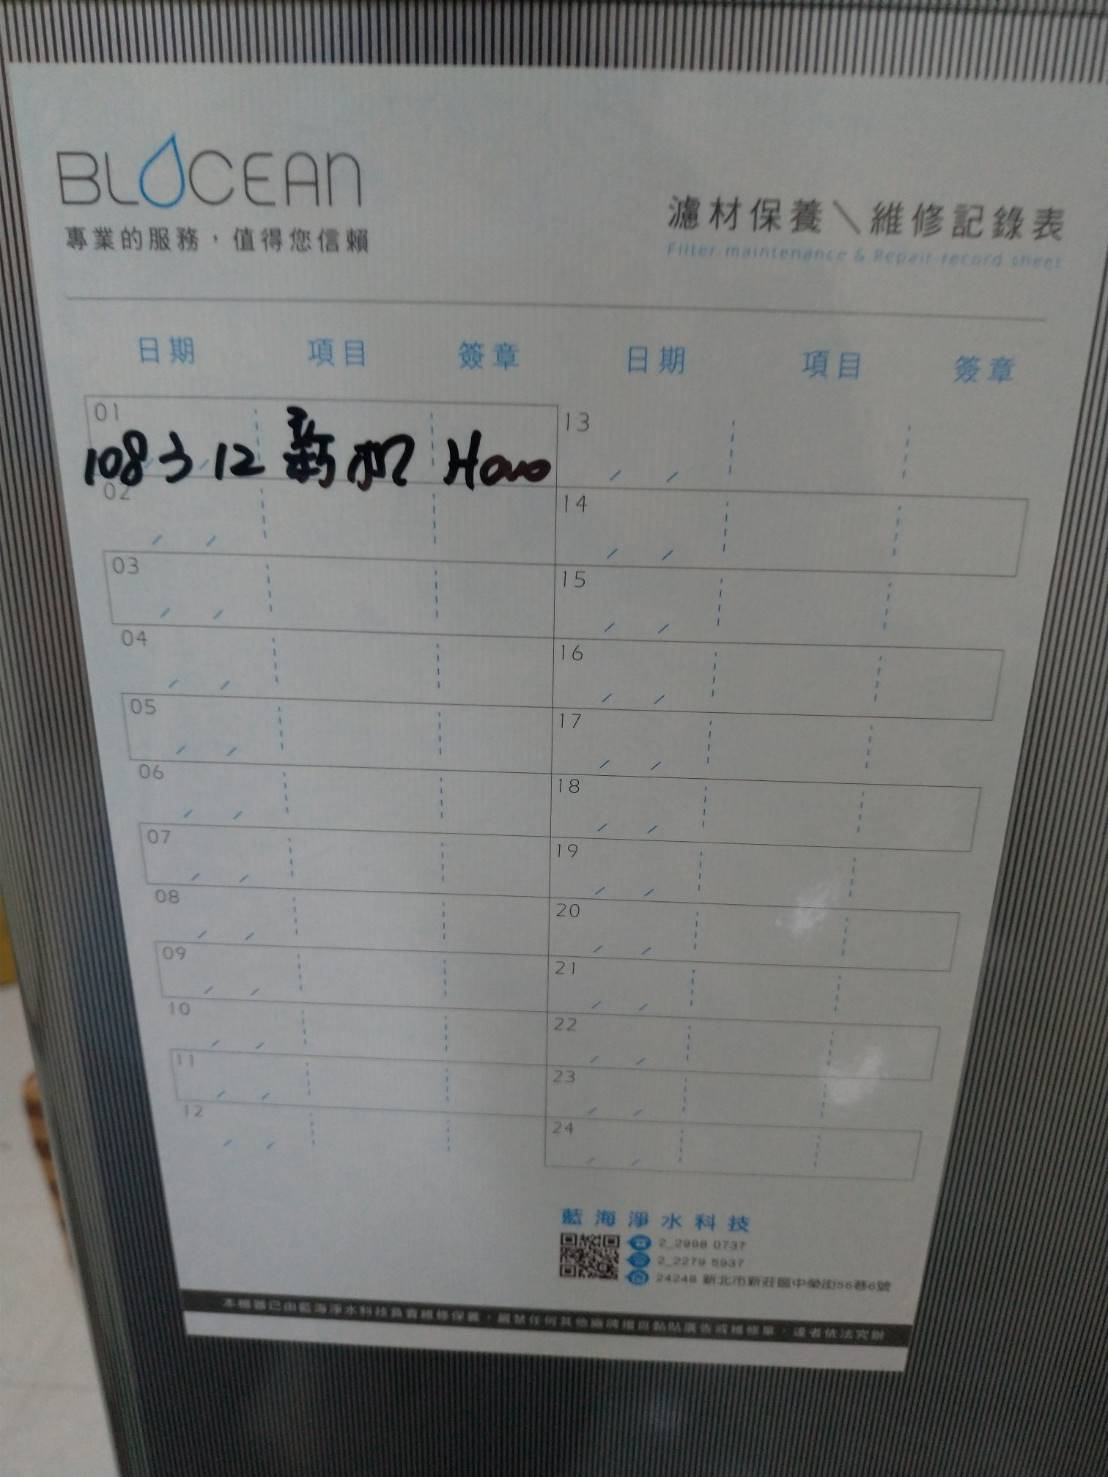 BLOCEAN
專業的服務，值得您信賴
濾材保養＼維修記錄表
Filter maintenance & Repair record sheet
日期 項目 簽章 日期 項目 簽章
01 108 3 12 新机 13
02 14
03 15
04 16
05 17
06 18
07 19
08 20
09 21
10 22
11 23
12 24
藍海淨水科技
2_2998 0737
2_2279 5937
24248 新北市新莊區中榮街56巷6號
本機器已由藍海淨水科技負責維修保養，嚴禁任何其他廠牌擅自黏貼廣告或維修單，違者依法究辦